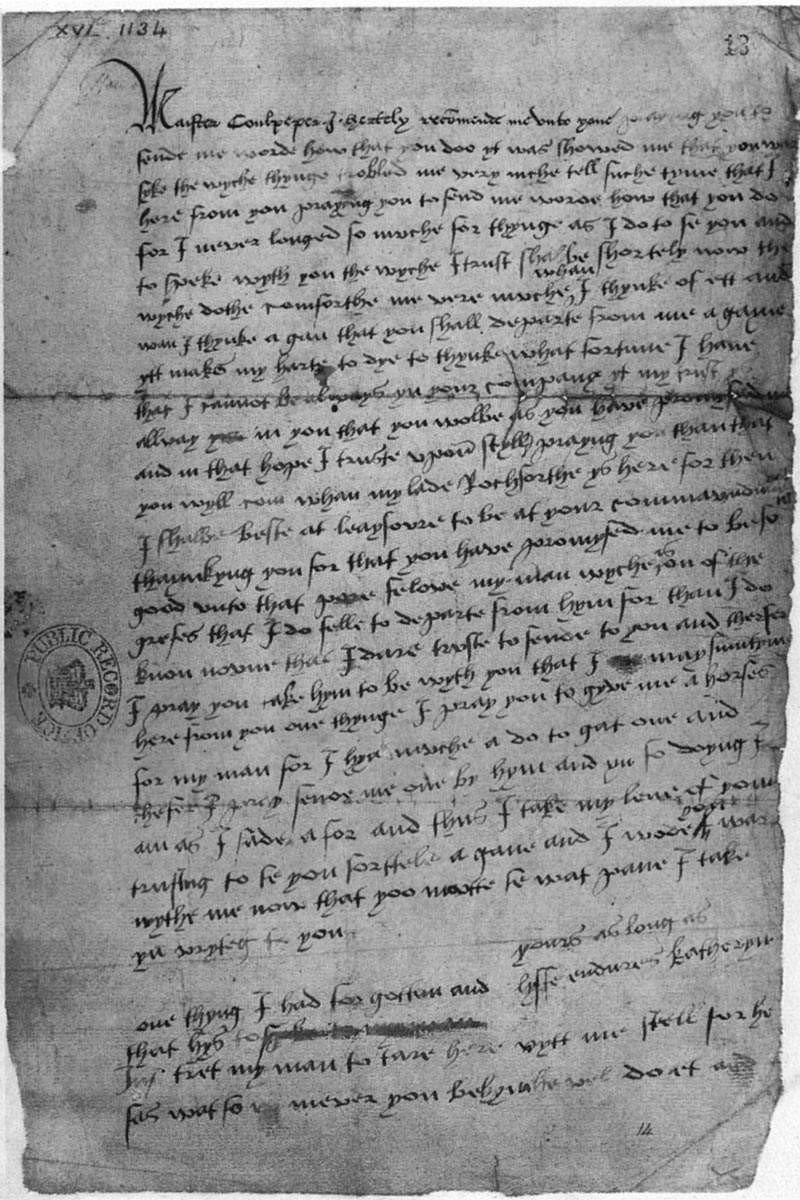 XVI. 1134
13
Maister Coulpeper I hertely recomende me unto youe praying you to
sende me worde how that you doo yt was showed me that you was
syke the wyche thynge trobled me very muche tell suche tyme that I
here from you praying you to send me worde how that you do
for I never longed so muche for thynge as I do to se you and
to speke wyth you the wyche I trust shal be shortely now the
wyche dothe comforthe me very muche whan I thynke of ett and
wan I thynke agan that you shall departe from me agayne
ytt makes my harte to dye to thynke what fortune I have
that I cannot be always yn your company yt my trust ys
allway in you that you wolbe as you have promysed me
and in that hope I truste upon styll prayng you than that
you wyll com whan my lade Rochforthe ys here for then
I shalbe beste at leaysoure to be at your commaundment
thaynkyng you for that you have promysed me to be so
good unto that pore felowe my man wyche ys on of the
grefes that I do felle to departe from hym for than I do
know noone that I dare truste to sende to you and therfor
I pray you take hym to be wyth you that I may sumtym
here from you one thynge I pray you to gyve me a horse
for my man for I hyd muche a do to gat one and
thefer I pray sende me one by hym and yn so doyng I
am as I sade afor and thus I take my leve of you
trusting to se you shorttele agane and I wode you war
wythe me now that yoo mytte se wat pane I take
yn wryteg to you
yours as long as
lyffe endures Katheryn
one thyng I had forgotten and
that hys to
tret my man to tare here wytt me stell for he
sas wat so ever you bed hym he wel do et and
PUBLIC RECORD OFFICE
14